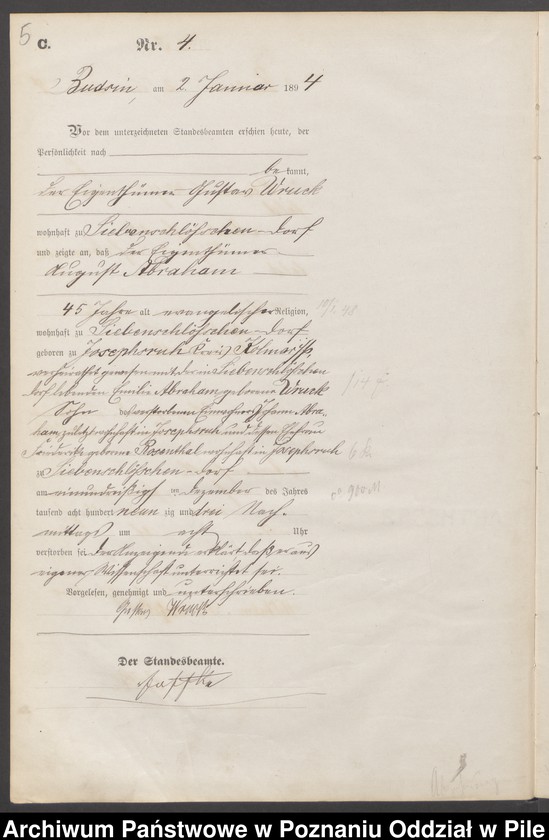 5
C. Nr. 4.
Budsin, am 2 Januar 1894
Vor dem unterzeichneten Standesbeamten erschien heute, der
Persönlichkeit nach
bekannt,
der Eigenthümer Gustav Wruck
wohnhaft zu Siebenschlößchen-Dorf
und zeigte an, daß der Eigenthümer
August Abraham
45 Jahre alt evangelischer Religion,
wohnhaft zu Siebenschlößchen-Dorf
geboren zu Josephsruh Kreis Kolmar i/P.
verheirathet gewesen mit der in Siebenschlößchen
Dorf lebenden Emilie Abraham geborene Wruck
Sohn des verstorbenen Johann Abra-
ham, zuletzt wohnhaft in Josephsruh und dessen Ehefrau
geborene Rosenthal wohnhaft in Josephsruh
zu Siebenschlößchen-Dorf
am einunddreißigsten Dezember des Jahres
tausend acht hundert neunzig und drei Nach-
mittags um acht Uhr
verstorben sei. Der Anzeigende erklärt daß er aus
eigener Wissenschaft unterrichtet sei.
Vorgelesen, genehmigt und unterschrieben.
Gustav Wruck
Der Standesbeamte.
Archiwum Państwowe w Poznaniu Oddział w Pile